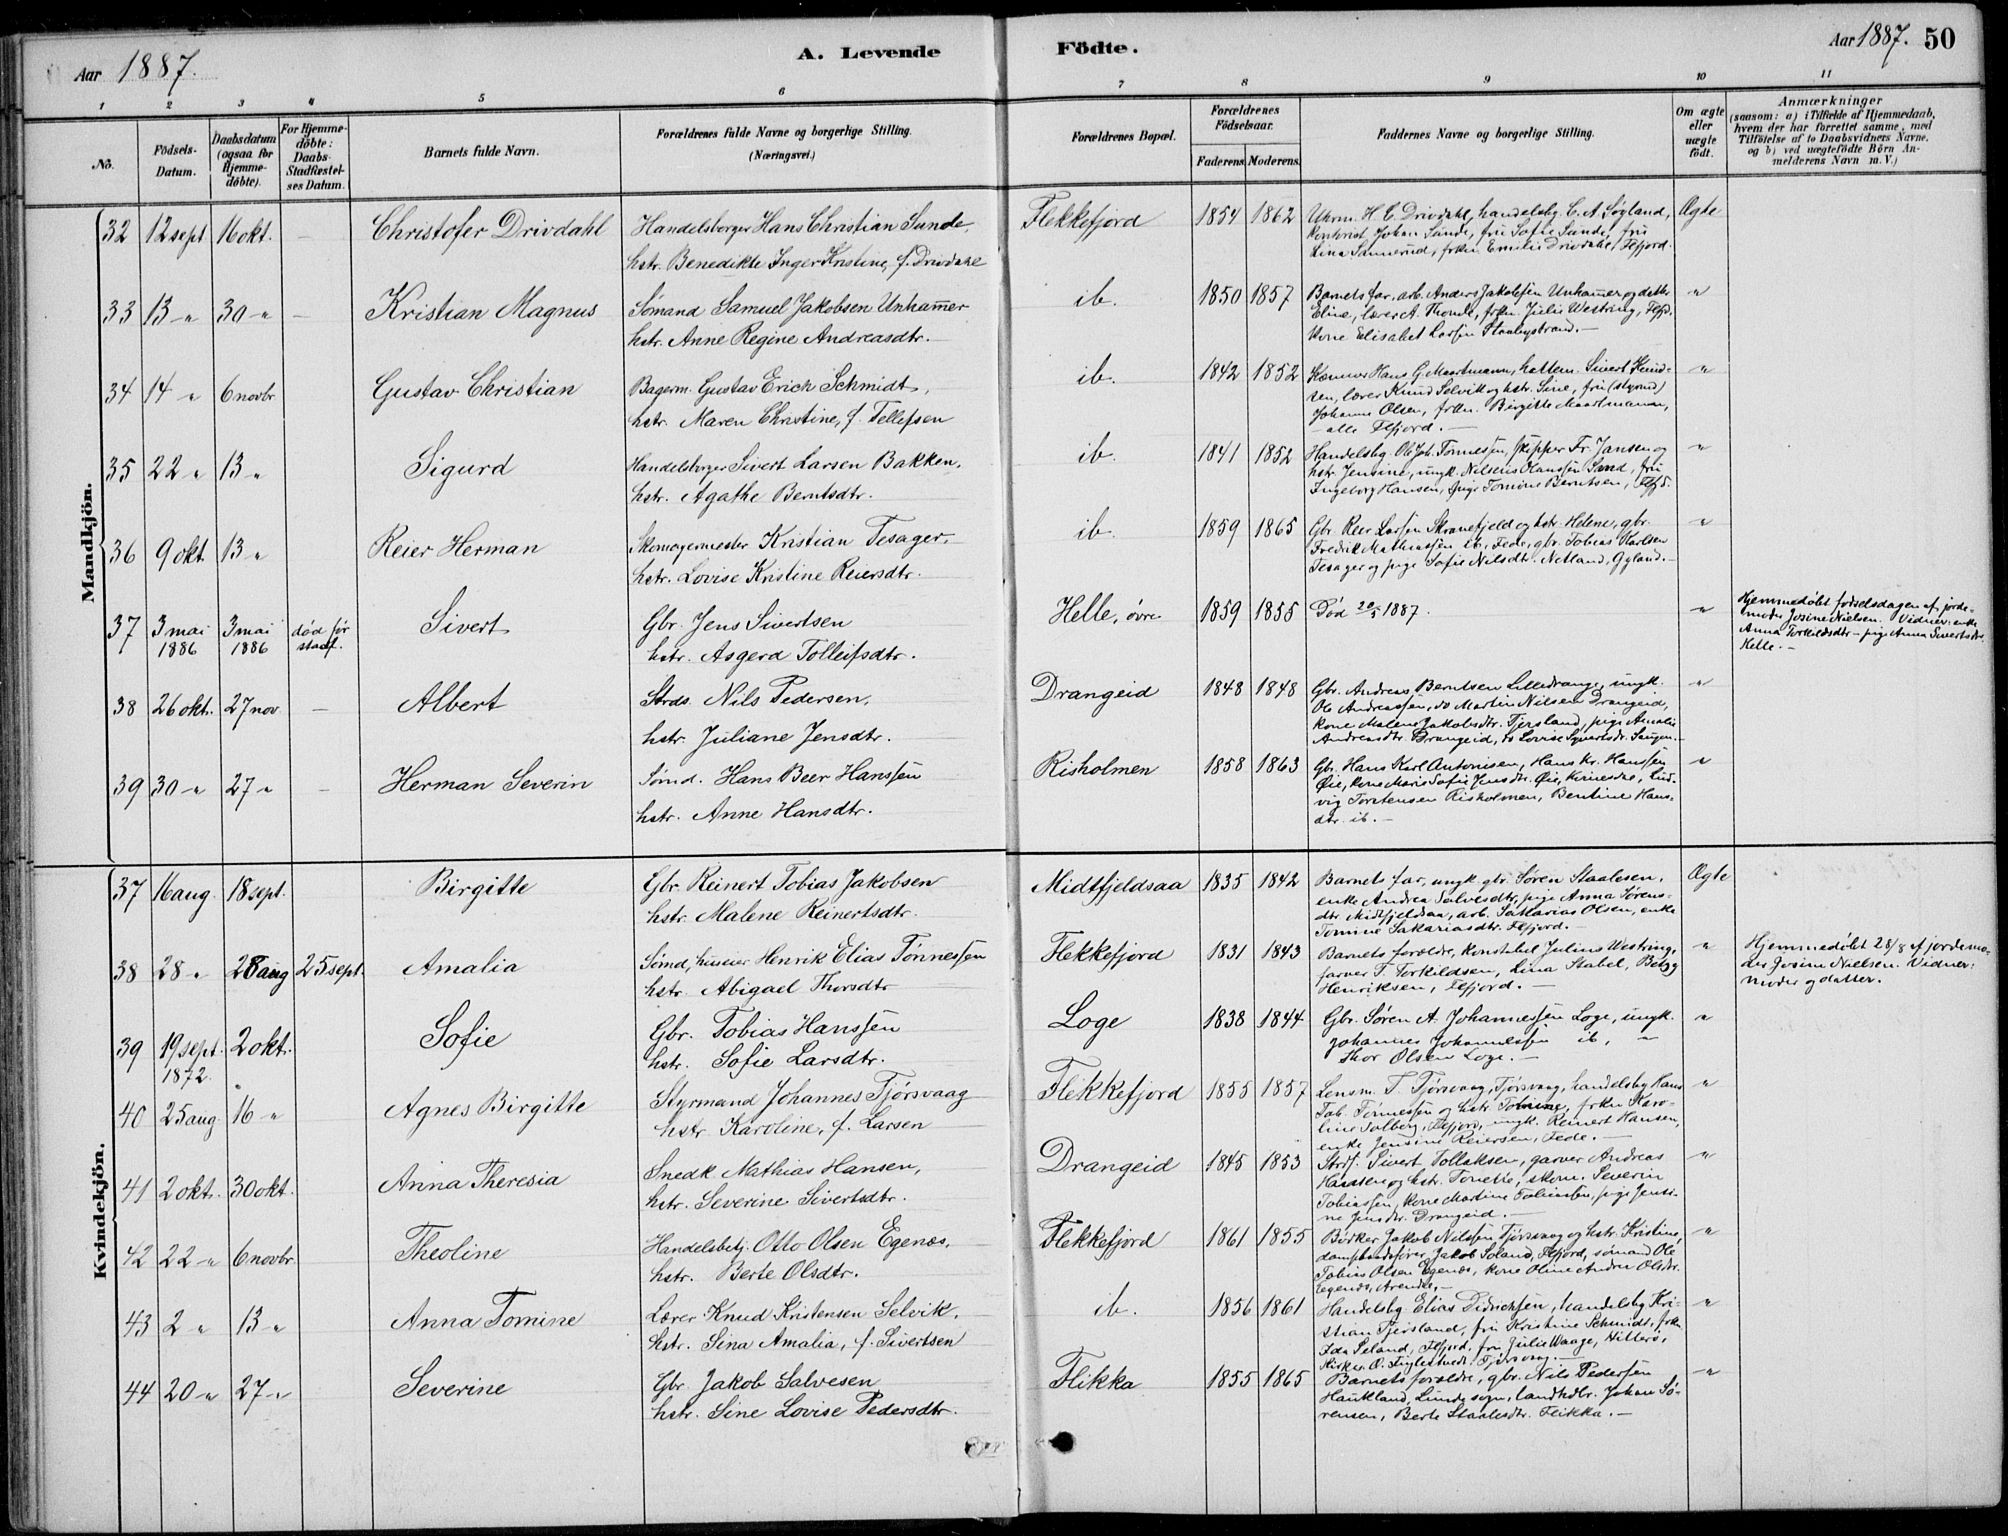 Aar 1887.
A. Levende
Födte.
Aar 1887. 50
1 2 3 4 5 6 7 8 9 10 11
No.
Födsels-Datum.
Daabsdatum (ogsaa for Hjemme-döbte).
For Hjemme-döbte: Daabs-Stadfæstel-ses Datum.
Barnets fulde Navn.
Forældrenes fulde Navne og borgerlige Stilling. (Næringsvei.)
Forældrenes Bopæl.
Forældrenes Födselsaar.
Faderens Moderens
Faddernes Navne og borgerlige Stilling.
Om ægte eller uægte födt.
Anmærkninger
(saasom: a) i Tilfælde af Hjemmedaab,
hvem der har forrettet samme, med
Tilföielse af to Daabsvidners Navne.
og b) ved uægtefödte Börn An-
melderens Navn m. V.)
Mandkjön.
32 12 sept 16 okt. — Christofer Drivdahl Handelsborger Hans Christian Sunde, Flekkefjord 1854 1862 H. C. Drivdahl, handelsbg. C. A. Søyland, Ægte
hstr. Benedikte Inger Kristine, f. Drivdahl Johan Sunde, frk Sofie Sunde, fru
Lina Sannerud, frkn Emilie Drivdahl, Flfjord.
33 13 " 30 " — Kristian Magnus Sømand Samuel Jakobsen Unhamer ib. 1850 1857 Barnets far, arb. Anders Jakobsen Unhamer og datter "
hstr. Anne Regine Andreasdtr. Eline, lærer A. Thonli, frkn. Julie Westring, Flfjd.
Kone Elisabet Larsen
34 14 " 6 novbr Gustav Christian Bagerm. Gustav Erich Schmidt, ib. 1842 1852 Kæmner Hans G. Maartmann, hattem. Sivert Knud- "
hstr. Maren Christine, f. Tellefsen sen, lærer Knud Selvik og hstr. Sine, fru (styrmd)
Johanne Olsen, frkn. Birgitte Maartmann,
— alle Flfjord. —
35 22 " 13 " Sigurd Handelsborger Sivert Larsen Bakken, ib. 1841 1852 Handelsbg. Ole Joh. Tønnessen, skipper Fr. Jansen og "
hstr. Agathe Berntsdtr. hstr. Jensine, ungk. Nilsens Olaussen Sand, fru
Ingeborg Hansen, pige Tomine Berntsen, Flfd.
36 9 okt. 13 " Reier Herman Skomagermester Kristian Tesager, ib. 1859 1865 Gbr. Reer Larsen Skranefjeld og hstr. Helene, gbr. "
hstr. Lovise Kristine Reiersdtr. Fredrik Mathiassen ib, Fede, gbr. Tobias Karlsen
Tesager og pige Sofie Nilsdtr. Netland, Gyland. —
37 3 mai 1886 3 mai 1886 død før stadf. Sivert Gbr. Jens Sivertsen Helle, øvre 1859 1855 Død 20/5 1887. " Hjemmedøbt fødselsdagen af jorde-
hstr. Asgerd Tolleifsdtr. moder Josine Nielsen. Vidner: enke
Anna Torkildsdtr — pige Anna Sivertsdtr.
Helle. —
38 26 okt. 27 nov — Albert Strds. Nils Pedersen, Drangeid 1848 1848 Gbr. Andreas Berntsen Lilledrange, ungk. "
hstr. Juliane Jensdtr. Ole Andreassen, do Martin Nilsen Drangeid,
kone Malene Jakobsdtr. Fjersland, pige Amalie
Andreasdtr Drangeid, do Lovise Syvertsdtr.
39 30 " 27 " — Herman Severin Sømd. Hans Beer Hanssen Risholmen 1858 1863 Gbr. Hans Karl Antonisen, Hans Kr. Hanssen "
hstr. Anne Hansdtr. Øie, kone Marie Sofie Jensdtr. Øie, Lud-
vig Torstensen Risholmen, Bentine Hans-
dtr. ib. —
Kvindekjön.
37 16 aug. 18 sept. Birgitte Gbr. Reinert Tobias Jakobsen Midtfjeldsaa 1835 1842 Barnets far, ungk. gbr. Søren Staalesen, Ægte
hstr. Malene Reinertsdtr. enke Andrea Salvesdtr, pige Anna Sørens-
dtr Midtfjeldsaa, arb. Sakarias Olsen, enke
Tomine Sakariasdtr. Flfjord.
38 28 " 28 aug 25 sept. Amalia Sømd, huseier Henrik Elias Tønnessen Flekkefjord 1831 1843 Barnets forældre, konstabel Julius Westring, " Hjemmedøbt 28/8 af jordemo-
hstr. Abigael Thorsdtr farver T. Torkildsen, Lina Stabel, Betzy der Josine Nielsen. Vidner:
Henriksen, Flfjord. — moder og datter.
39 19 sept. 1872 2 okt. Sofie Gbr. Tobias Hanssen Loge 1838 1844 Gbr. Søren A. Johannessen Loge, ungk. "
hstr. Sofie Larsdtr. Johannes Johannessen ib, "
Thor Olsen Loge. —
40 25 aug 16 " Agnes Birgitte Styrmand Johannes Tjørsvaag Flekkefjord 1855 1857 Lensm. T. Tjørsvaag, Tjørsvaag, handelsbg Hans "
hstr. Karoline, f. Larsen Tob. Tønnessen og hstr Tobine, frkn Karo-
line Solberg, Flfjord, ungk. Reinert Hansen,
enke Jensine Reiersen, Fede. —
41 2 okt. 30 okt. Anna Theresia Snedk. Mathias Hansen, Drangeid 1845 1853 Strds. Sivert Tollaksen, garver Andreas "
hstr. Severine Sivertsdtr. Hanssen og hstr. Tonette, skom. Severin
Tobiassen, kone Martine Tobiassen, pige Jensi-
ne Jensdtr. Drangeid. —
42 22 " 6 novbr. Theoline Handelsbetj. Otto Olsen Egenæs, Flekkefjord 1861 1855 Bødker Jakob Nilssen Tjørsvaag og hstr. Kristine, "
hstr. Berte Olsdtr. dampbaadsfører Jakob Soland, Flfjord, sømand Ole
Tobias Olsen Egenæs, kone Oline Andrea Olsdtr.
Egenæs, Arendal. —
43 2 " 13 " Anna Tomine Lærer Knud Kristensen Selvik, ib. 1856 1861 Handelsbg. Elias Didrichsen, handelsbg Kri- "
hstr. Sina Amalia, f. Sivertsen stian Fjersland, fru Kristine Schmidt, frkn
Ida Seland, Flfjord, fru Julie Waage, Hitterø,
Kirkes. O. Figlestved. Tjørsvaag. —
44 20 " 27 " Severine Gbr. Jakob Salvesen Flikka 1855 1865 Barnets forældre, gbr. Nils Pedersen "
hstr. Sine Lovise Pedersdtr. Haukland, Lunde sogn, landhdlr. Johan Sø-
rensen, Berte Staalesdtr. Flikka. —